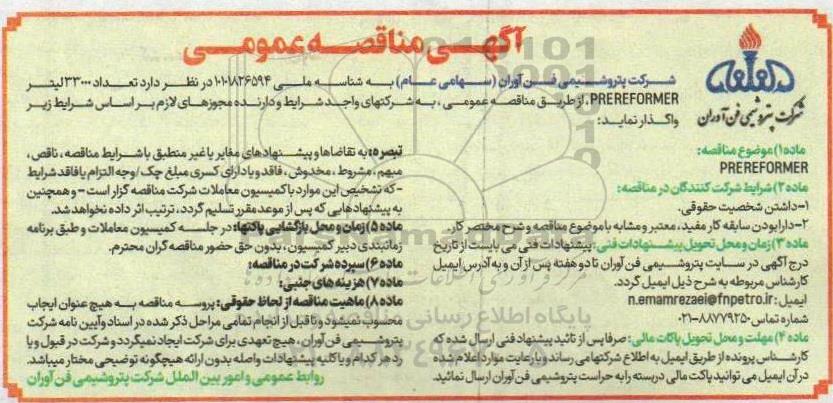 آگهـی مناقصـه عمومـی
شرکت پتروشیمی فن آوران
شرکت پتروشیمی فن آوران (سهامی عام) به شناسه ملی ۱۰۱۰۱۸۳۶۵۹۴ در نظر دارد تعداد ۳۳۰۰۰ لیتر
PREREFORMER، از طریق مناقصه عمومی، به شرکتهای واجد شرایط و دارنده مجوزهای لازم بر اساس شرایط زیر
واگذار نماید:
ماده ۱) موضوع مناقصه:
PREREFORMER
ماده ۲) شرایط شرکت کنندگان در مناقصه:
۱-داشتن شخصیت حقوقی.
۲-دارا بودن سابقه کار مفید، معتبر و مشابه با موضوع مناقصه و شرح مختصر کار.
ماده ۳) زمان و محل تحویل پیشنهادات فنی: پیشنهادات فنی می بایست از تاریخ
درج آگهی در سایت پتروشیمی فن آوران تا دو هفته پس از آن و به آدرس ایمیل
کارشناس مربوطه به شرح ذیل ایمیل گردد.
ایمیل: n.emamrezaei@fnpetro.ir
شماره تماس: ۸۸۷۷۹۲۵۰-۰۲۱
ماده ۴) مهلت و محل تحویل پاکات مالی: صرفا پس از تائید پیشنهاد فنی ارسال شده که
کارشناس پرونده از طریق ایمیل به اطلاع شرکتها می رساند و با رعایت موارد اعلام شده
در آن ایمیل می توانید پاکت مالی دربسته را به حراست پتروشیمی فن آوران ارسال نمائید.
تبصره: به تقاضاها و پیشنهادهای مغایر یا غیر منطبق با شرایط مناقصه، ناقص،
مبهم، مشروط، مخدوش، فاقد و یا دارای کسری مبلغ چک /وجه التزام یا فاقد شرایط
-که تشخیص این موارد با کمیسیون معاملات شرکت مناقصه گزار است - و همچنین
به پیشنهادهایی که پس از موعد مقرر تسلیم گردد، ترتیب اثر داده نخواهد شد.
ماده ۵) زمان و محل بازگشایی پاکتها: در جلسه کمیسیون معاملات و طبق برنامه
زمانبندی دبیر کمیسیون، بدون حق حضور مناقصه گران محترم.
ماده ۶) سپرده شرکت در مناقصه:
ماده ۷) هزینه های جنبی:
ماده ۸) ماهیت مناقصه از لحاظ حقوقی: پروسه مناقصه به هیچ عنوان ایجاب
محسوب نمیشود و تا قبل از انجام تمامی مراحل ذکر شده در اسناد و آیین نامه شرکت
پتروشیمی فن آوران، هیچ تعهدی برای شرکت ایجاد نمیگردد و شرکت در قبول و یا
رد هر کدام و یا کلیه پیشنهادات واصله بدون ارائه هیچگونه توضیحی مختار میباشد.
روابط عمومی و امور بین الملل شرکت پتروشیمی فن آوران
پایگاه اطلاع رسانی مناقصه